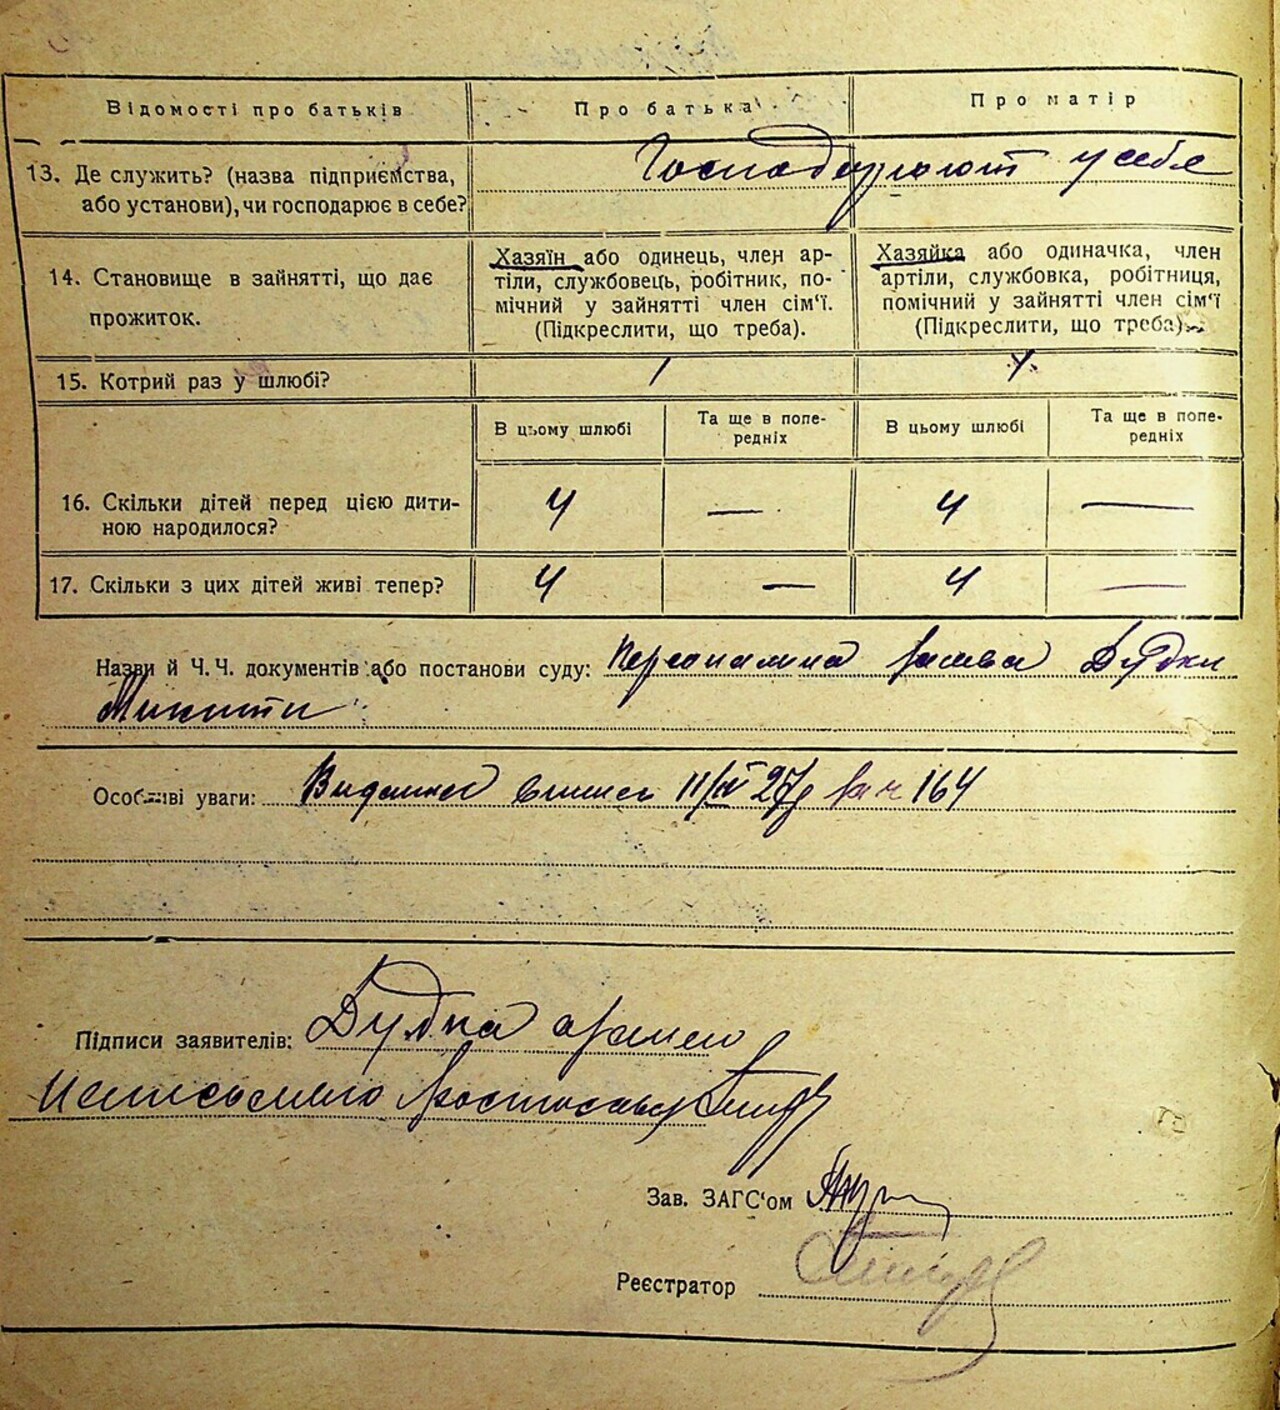 Відомості про батьків
Про батька
Про матір
13. Де служить? (назва підприємства,
або установи), чи господарює в себе?
Господарюют у себе
14. Становище в зайнятті, що дає
прожиток.
Хазяїн або одинець, член ар-
тіли, службовець, робітник, по-
мічний у зайнятті член сім'ї.
(Підкреслити, що треба).
Хазяйка або одиначка, член
артіли, службовка, робітниця,
помічний у зайнятті член сім'ї
(Підкреслити, що треба).
15. Котрий раз у шлюбі?
1
В цьому шлюбі
Та ще в попе-
редніх
В цьому шлюбі
Та ще в попе-
редніх
16. Скільки дітей перед цією дити-
ною народилося?
4 — 4 —
17. Скільки з цих дітей живі тепер?
4 — 4 —
Назви й Ч. Ч. документів або постанови суду: Персональна заява Дудки
Микити
Особливі уваги: 11/IV 27 164
Підписи заявителів: Дудка
Зав. ЗАГС'ом
Реєстратор